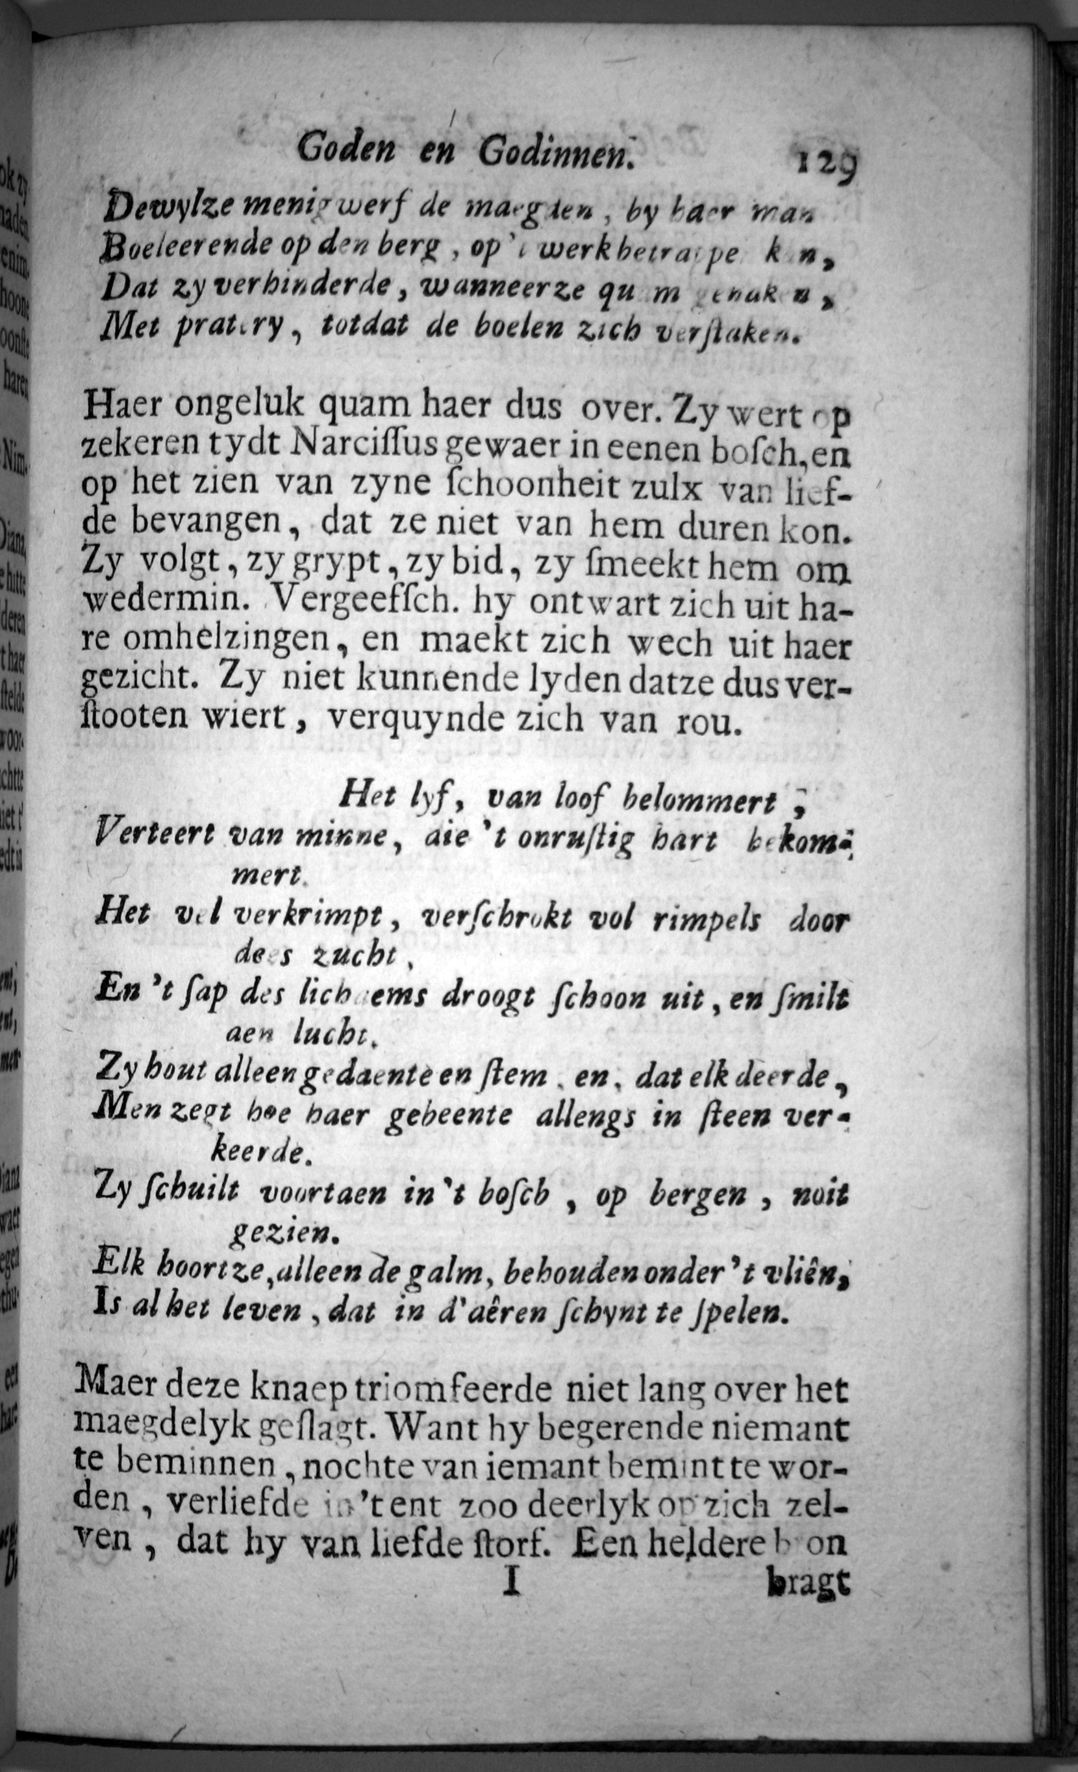 Goden en Godinnen. 129
Dewylze menigwerf de maegden, by haer man
Boeleerende op den berg, op 't werk betrappe kon,
Dat zy verhinderde, wanneerze quam genaken,
Met pratery, totdat de boelen zich verſtaken.
Haer ongeluk quam haer dus over. Zy wert op
zekeren tydt Narciſſus gewaer in eenen boſch, en
op het zien van zyne ſchoonheit zulx van lief-
de bevangen, dat ze niet van hem duren kon.
Zy volgt, zy grypt, zy bid, zy ſmeekt hem om
wedermin. Vergeefſch. hy ontwart zich uit ha-
re omhelzingen, en maekt zich wech uit haer
gezicht. Zy niet kunnende lyden datze dus ver-
ſtooten wiert, verquynde zich van rou.
Het lyf, van loof belommert,
Verteert van minne, die 't onruſtig hart bekom-
mert.
Het vel verkrimpt, verſchrokt vol rimpels door
dees zucht,
En 't ſap des lichaems droogt ſchoon uit, en ſmilt
aen lucht.
Zy hout alleen gedaente en ſtem, en, dat elk deerde,
Men zegt hoe haer gebeente allengs in ſteen ver-
keerde.
Zy ſchuilt voortaen in 't boſch, op bergen, noit
gezien.
Elk hoortze, alleen de galm, behouden onder 't vliên,
Is al het leven, dat in d'aêren ſchynt te ſpelen.
Maer deze knaep triomfeerde niet lang over het
maegdelyk geſlagt. Want hy begerende niemant
te beminnen, nochte van iemant bemint te wor-
den, verliefde in 't ent zoo deerlyk op zich zel-
ven, dat hy van liefde ſtorf. Een heldere bron
I bragt